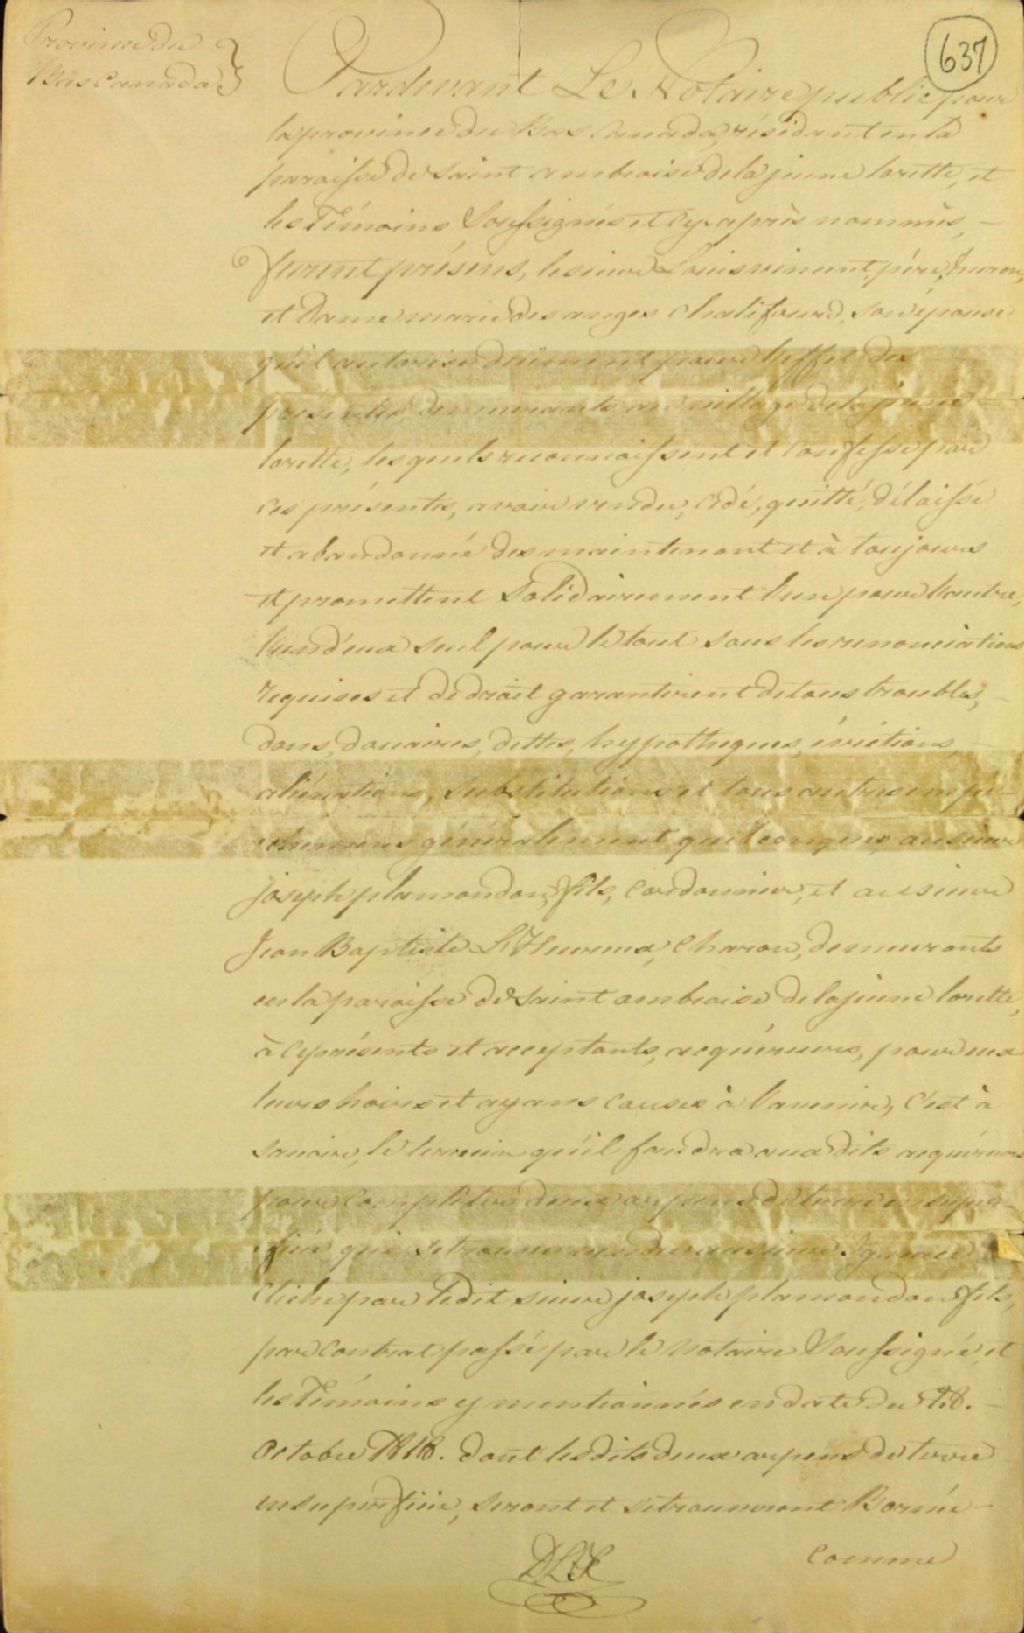 Province du
Bas Canada
637
Pardevant Le Notaire public pour
la province du Bas Canada, résidant en la
paroisse de Saint ambroise de la jeune lorette, et
les Témoins Soussignés et cy-après nommés, -
furent présens, le sieur Louis vincent, père, huron,
et Dame marie des anges Chalifourd, son épouse
qu'il autorise dûement pour l'effet des
présentes, demeurants au village de la jeune
lorette, lesquels reconnaissent et Confesse par
ces présentes, avoir vendu, cédé, quitté, délaissé
et abandonné des maintenant et à toujours
et promettent Solidairement l'un pour l'autre,
l'un d'eux seul pour le tout sous les renonciations
requises et de droit garantirent de tous troubles, -
dons, douaires, dettes, hypotheques, évictions, -
aliénations, substitutions et tous autres empê-
chemens généralement quelconques, au sieur
joseph plamondon, fils, Cordonnier, et au sieur
Jean Baptiste L'Heureux, Charon, demeurants
en la paroisse de Saint ambroise de la jeune lorette,
à ce présents et acceptants, acquéreurs, pour eux
leurs hoirs et ayans causes à l'avenir, C'est à
savoir, le terrein qu'il faudra aux dits acquéreurs
pour completer deux arpens de terre en super-
ficie qui se trouve vendu au sieur Ignace
Cliche par le dit sieur joseph plamondon fils,
par contrat passé par le Notaire Soussigné, et
les Témoins y mentionnés en date du 18. -
Octobre 1818. dont les dits deux arpens de terre
en superficie, seront et se trouveront Borné -
comme